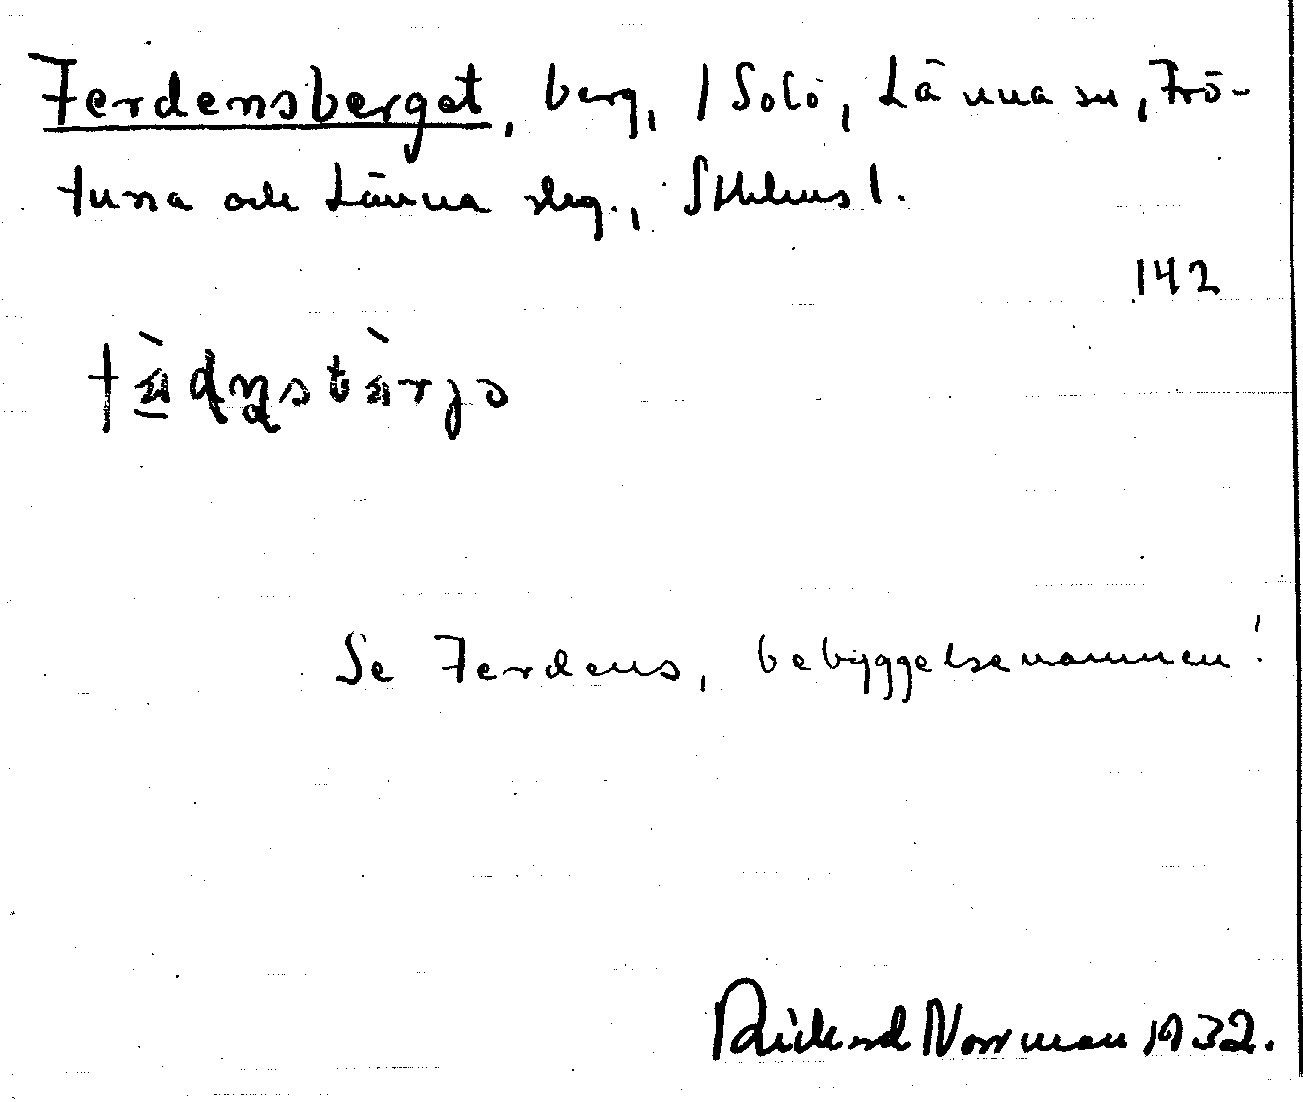 Ferdensberget, berg, / Solö, Länna sn, Frö-
tuna och Länna slg., Sthlms l.
142
Se Ferdens, bebyggelsenamnen!
Rickard Norrman 1932.